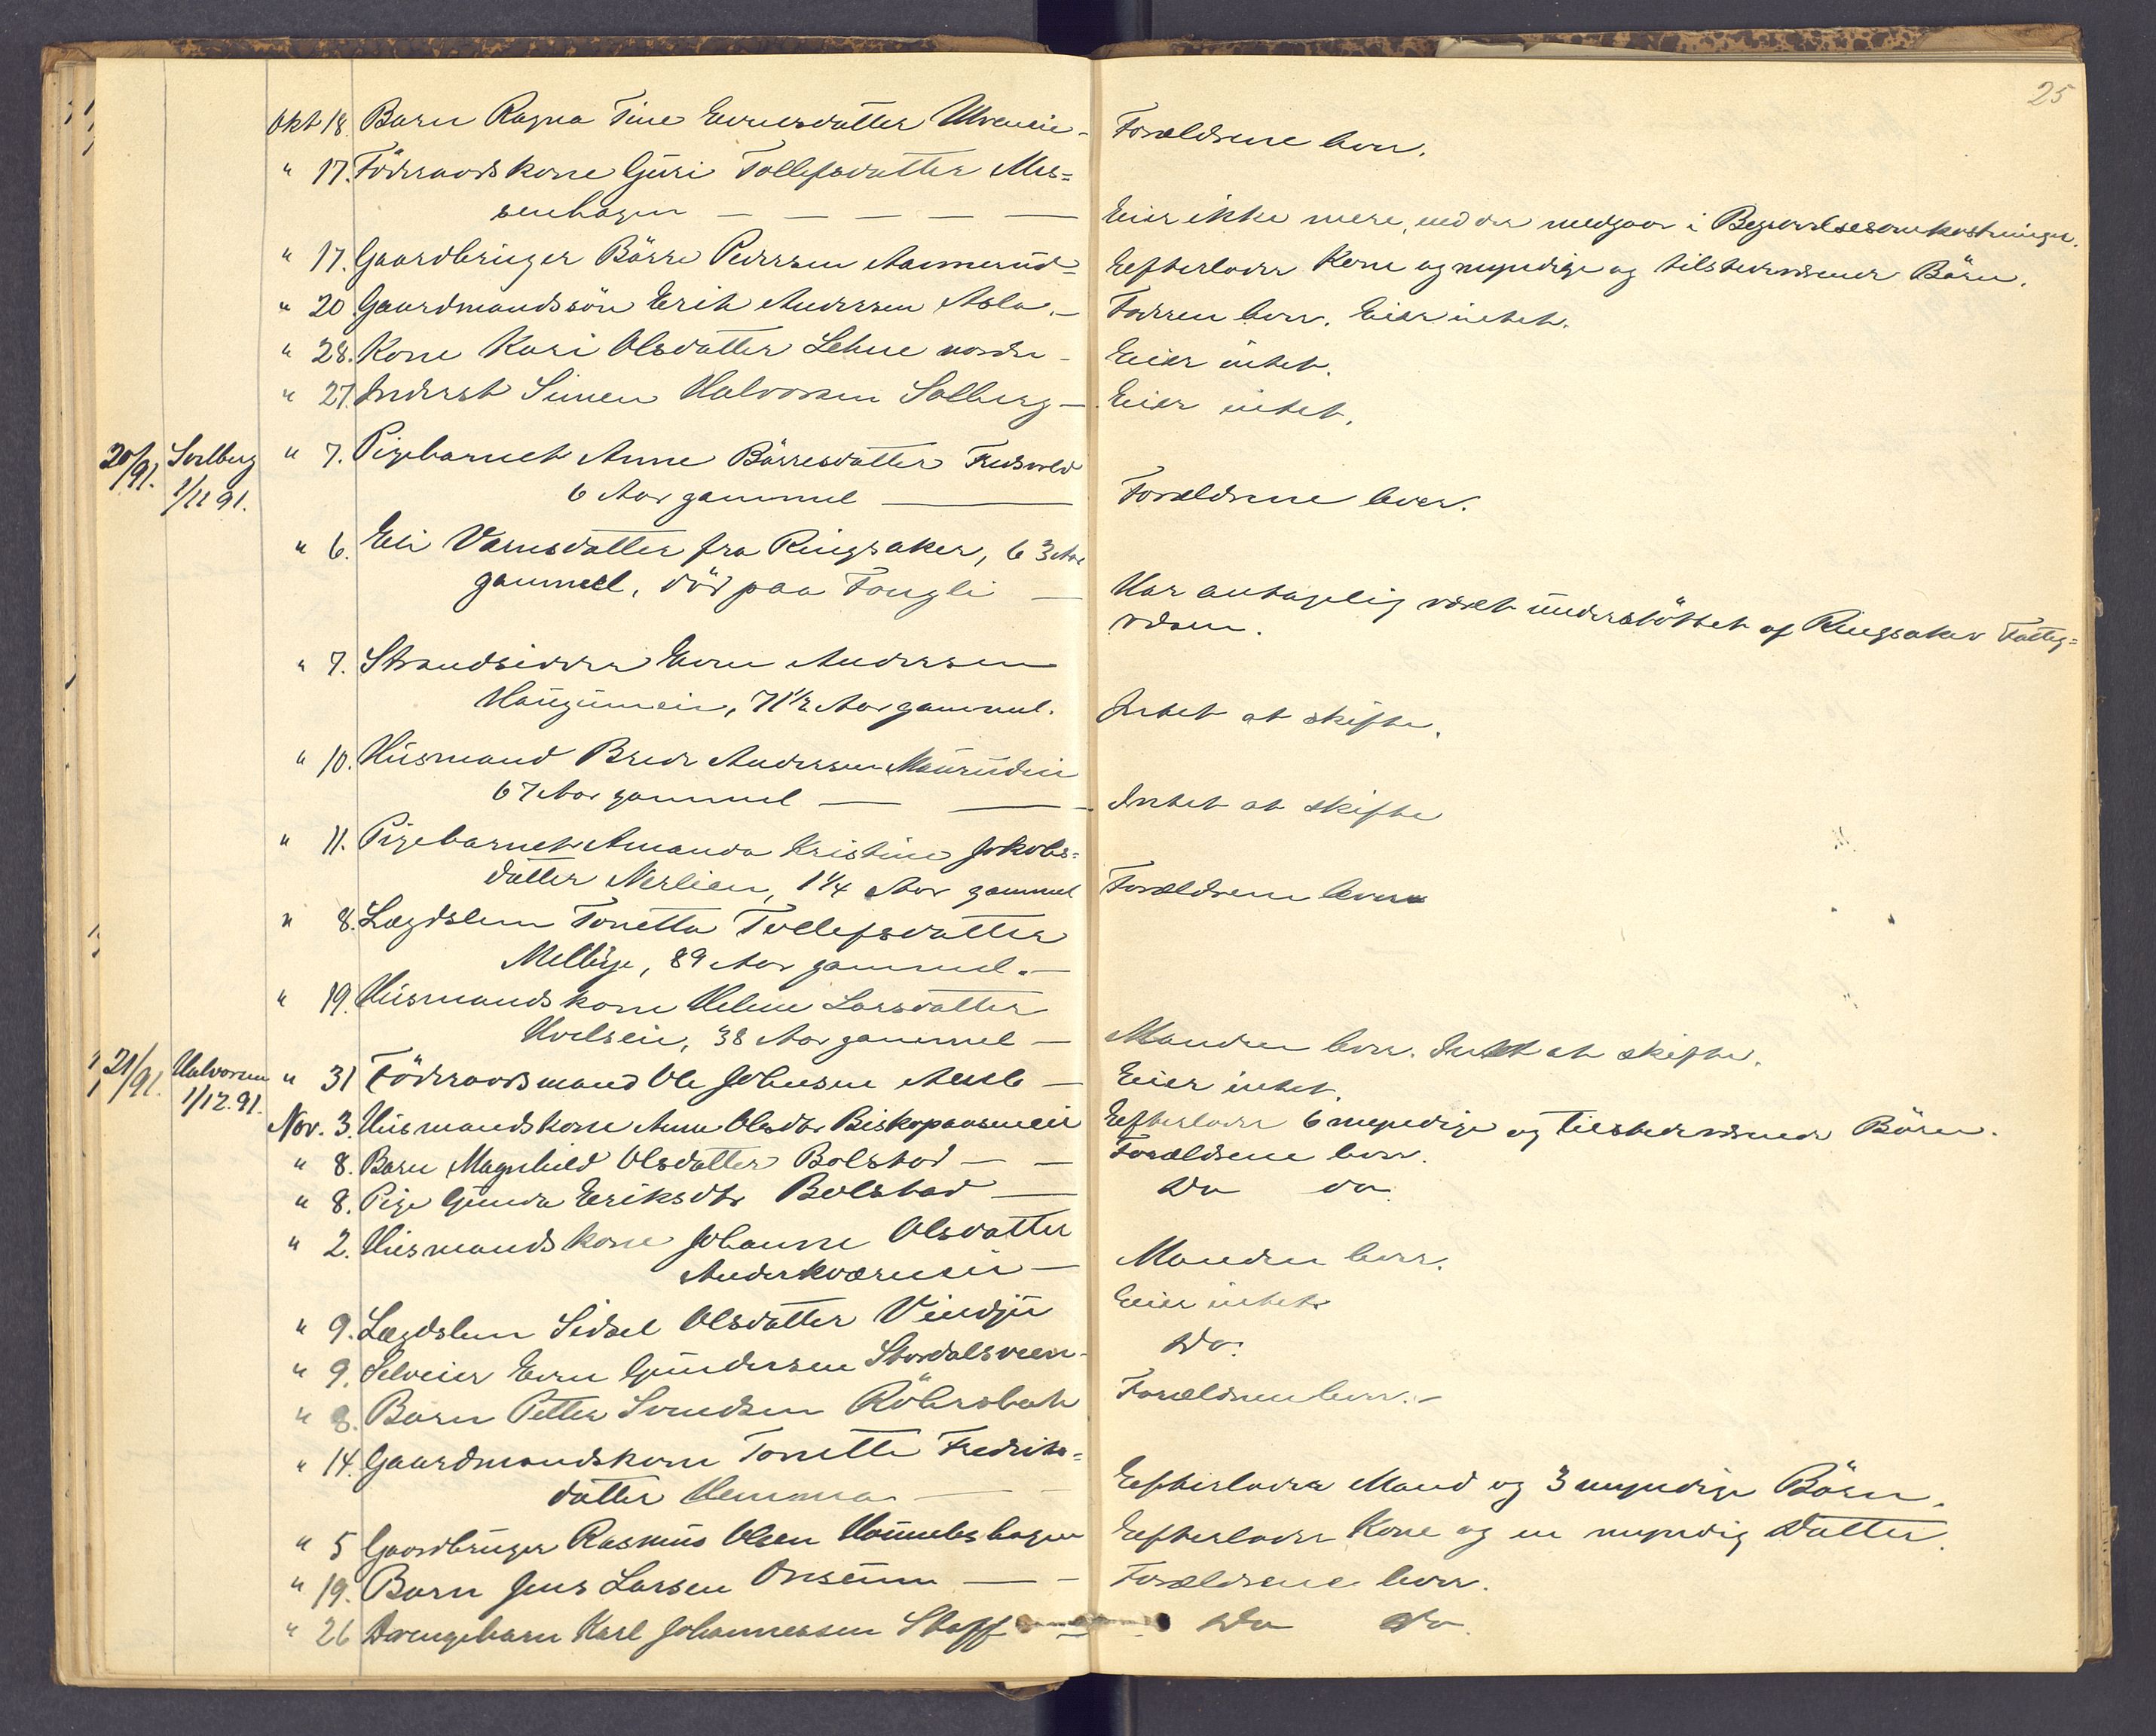 25
Okt 18. Barn Ragna Tine Evensdatter Ulveneie - Forældrene lever.
" 17. Föderaadskone Guri Tollefsdatter Mes=
senhagen — — — — — Eier ikke mere, end der medgaar i Begravelsesomkostninger.
" 17. Gaardbruger Börre Pedersen Aamerud - Efterlader Kone og myndige og tilstedeværende Börn.
" 20. Gaardmandssön Erik Andersen Asla. — Faderen lever. Eier intet.
" 28. Kone Kari Olsdatter Lehne nordre - Eier intet.
" 27. Inderst Simen Halvorsen Solberg — Eier intet.
20/91. Solberg 1/11 91. " 7. Pigebarnet Anne Börresdatter Fredsvold
6 Aar gammel — Forældrene lever.
" 6. Eli Varnsdatter fra Ringsaker, 63 Aar
gammel, död paa Fougli — Har antagelig været understöttet af Ringsaker Fattig=
væsen.
" 7. Strandsidder Even Andersen
Haugumeie, 71½ Aar gammel. Intet at skifte.
" 10. Husmand Brede Andersen Maurudeie
67 Aar gammel — — Intet at skifte
" 11. Pigebarnet Amanda Kristine Jokobs=
datter Nerlien, 1¼ Aar gammel Forældrene lever
" 8. Lægdslem Tonetta Tollefsdatter
Melbye, 89 Aar gammel. —
" 19. Husmandskone Helene Larsdatter
Hvelseie, 38 Aar gammel — Manden lever. Intet at skifte.
21/91. Halvorsen 1/12.91. " 31 Föderaadsmand Ole Johnsen — Eier intet.
Nov. 3. Husmandskone Anne Olsdtr Biskopaasmeie Efterlader 6 myndige og tilstedeværende Börn.
" 8. Barn Magnhild Olsdatter Bolstad — — Forældrene lever.
" 8. Pige Gunda Eriksdtr Bolstad — Do do.
" 2. Husmandskone Johanne Olsdatter
Anderkværneie — Manden lever.
" 9. Lægdslem Sidsel Olsdatter Vindju Eier intet
" 9. Selveier Even Gundersen Stordalsveen - Do.
" 8. Barn Petter Svendsen Röhrsbak Forældrene lever. -
" 14. Gaardmandskone Tonette Fredriks=
datter Hemma — - Efterlader Mand og 3 myndige Börn.
" 5 Gaardbruger Rasmus Olsen Hommelshagen Efterlader Kone og en myndig Datter.
" 19. Barn Jens Larsen Onsum — - Forældrene lever.
" 26 Drengebarn Karl Johannessen Staff — Do Do.